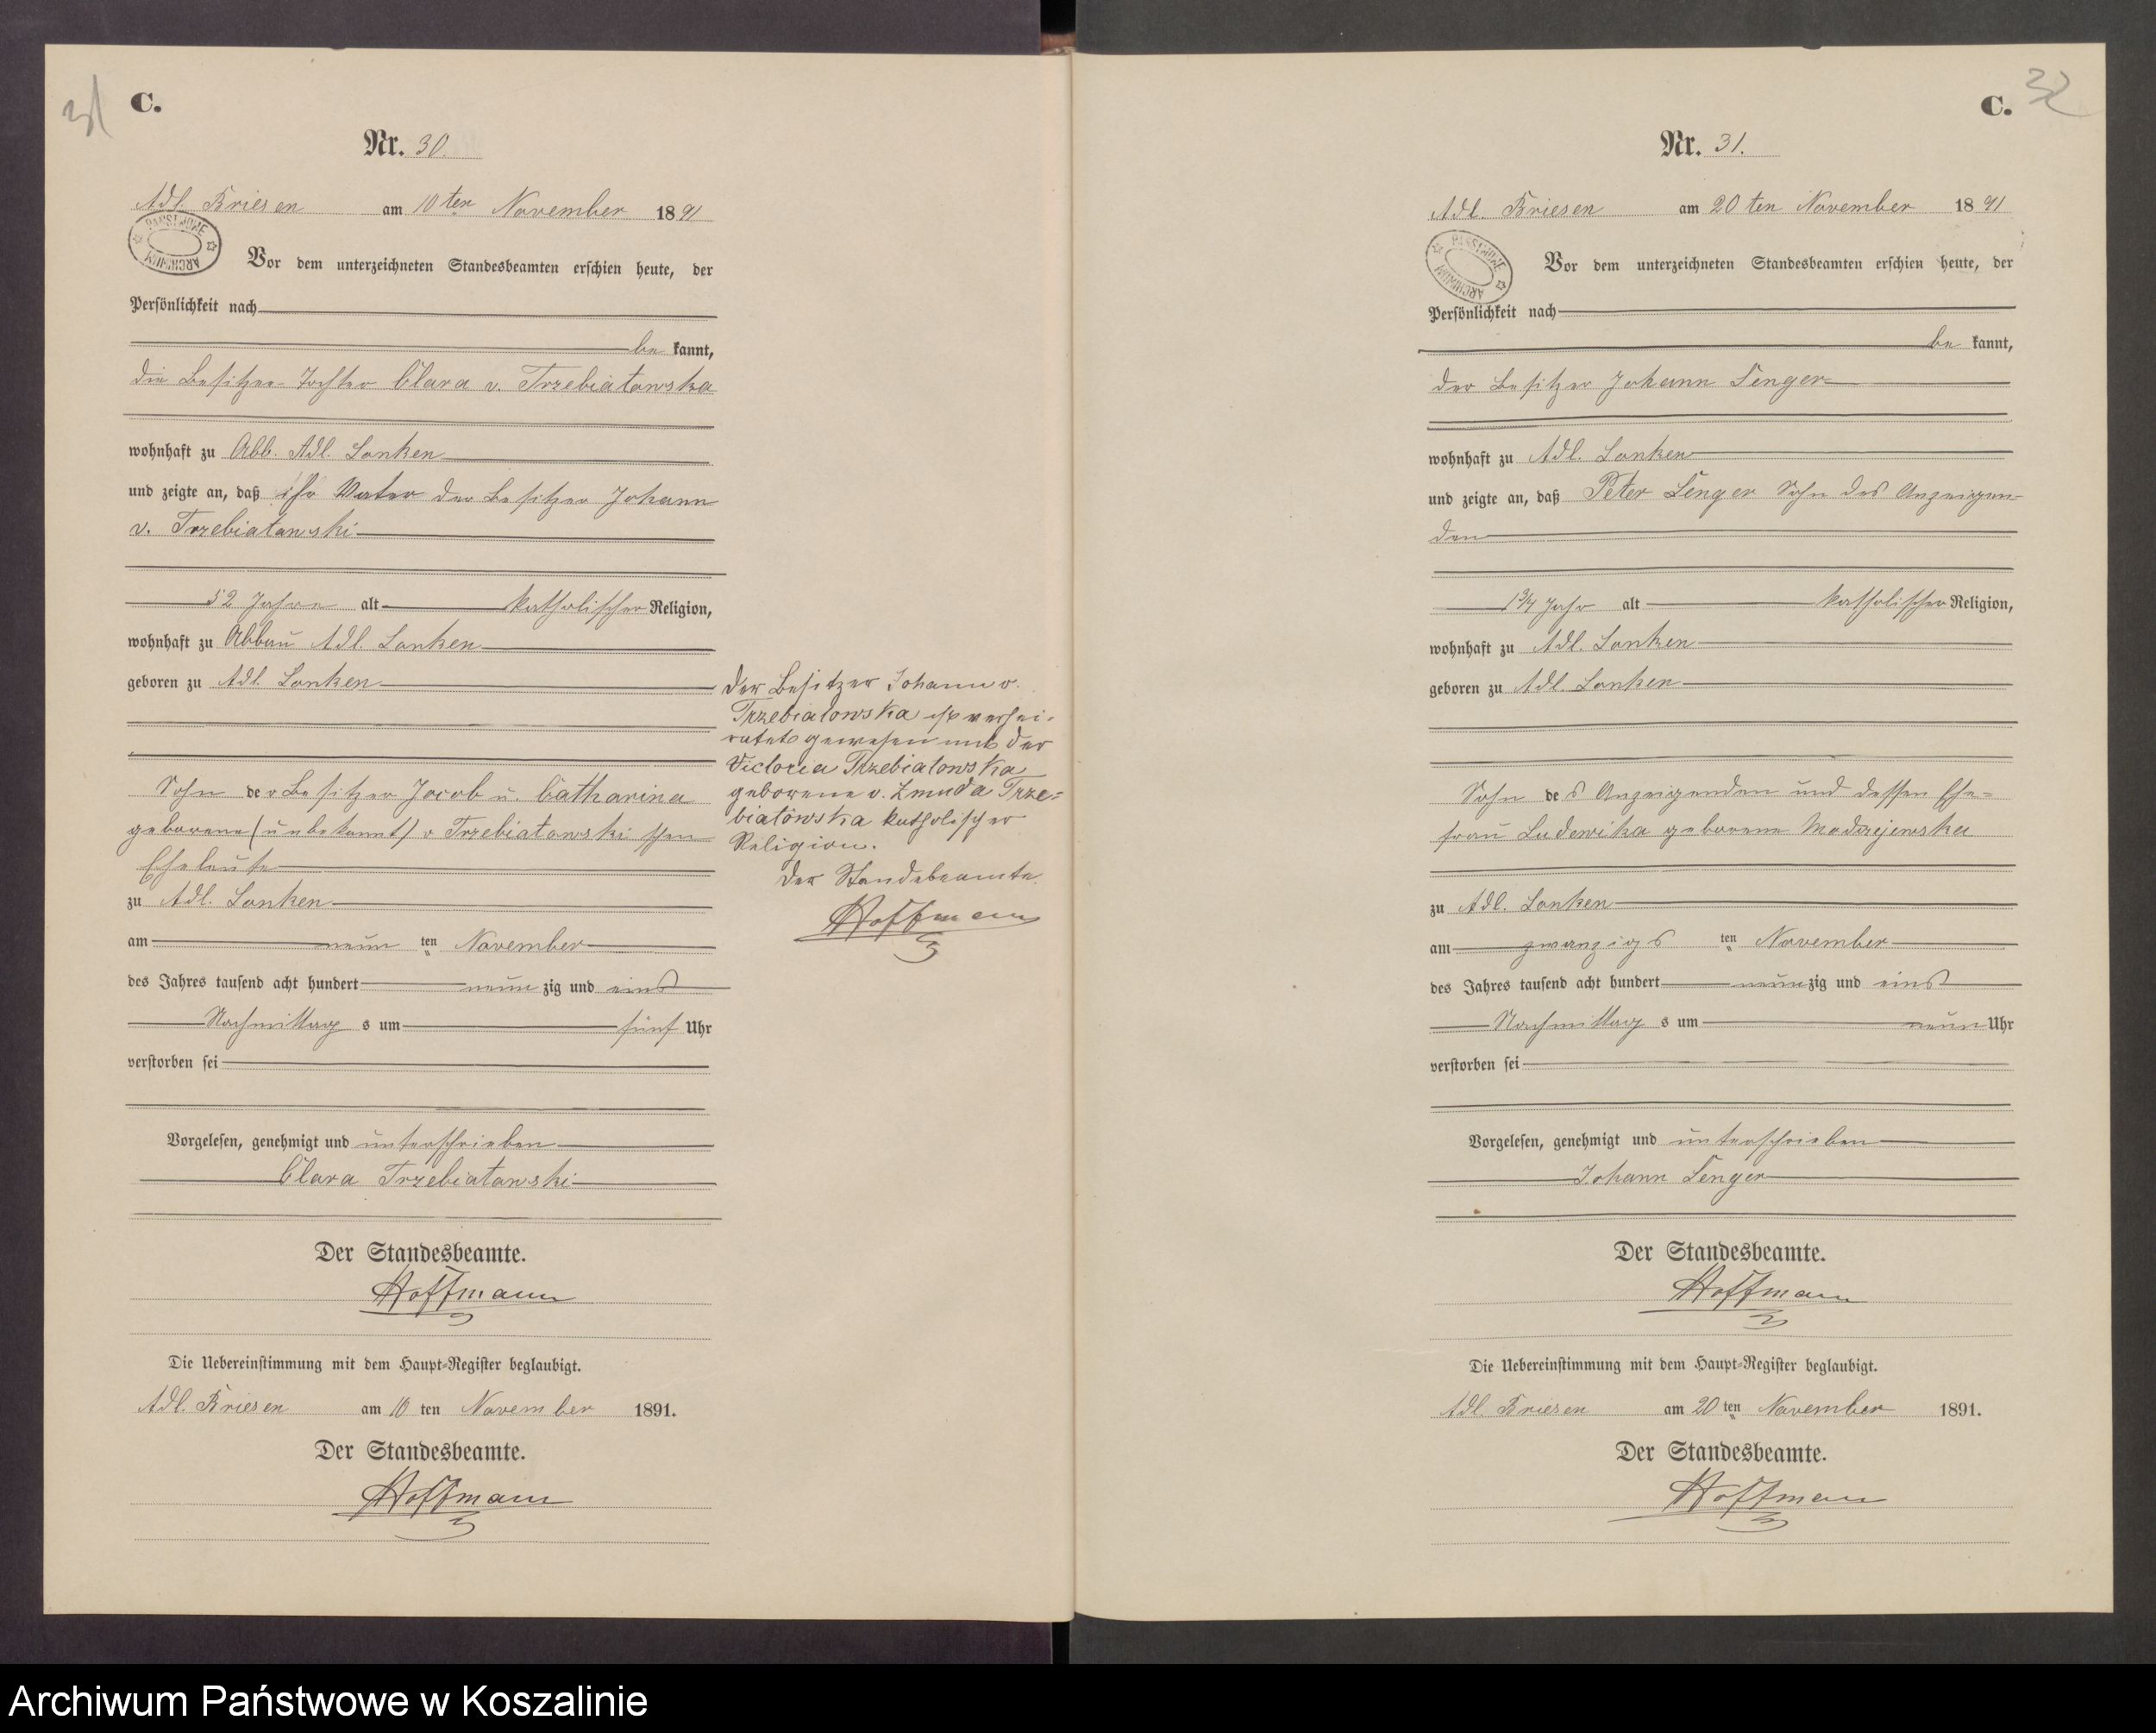 31
C.
Nr. 30.
Adl. Briesen am 10ten November 1891
PAŃSTWOWE ARCHIWUM
Vor dem unterzeichneten Standesbeamten erschien heute, der
Persönlichkeit nach
be kannt,
die Besitzer-Tochter Clara v. Trzebiatowska
wohnhaft zu Abb. Adl. Lonken
und zeigte an, daß ihr Vater der Besitzer Johann
v. Trzebiatowski
52 Jahre alt katholischer Religion,
wohnhaft zu Abbau Adl. Lonken
geboren zu Adl. Lonken
Sohn der Besitzer Jacob u. Catharina
geborene (unbekannt) v Trzebiatowski'schen
Eheleute
zu Adl. Lonken
am neun ten November
des Jahres tausend acht hundert neun zig und eins
Nachmittag s um fünf Uhr
verstorben sei
Vorgelesen, genehmigt und unterschrieben
Clara Trzebiatowski
Der Standesbeamte.
Hoffmann
Die Uebereinstimmung mit dem Haupt-Register beglaubigt.
Adl. Briesen am 10 ten November 1891.
Der Standesbeamte.
Hoffmann
Der Besitzer Johann v.
Trzebiatowska ist verhei-
ratet gewesen mit der
Victoria Trzebiatowska
geborene v. Zmuda Trze-
biatowska katholischer
Religion.
Der Standebeamte.
Hoffmann
32
C.
Nr. 31.
Adl. Briesen am 20 ten November 1891
PAŃSTWOWE ARCHIWUM
Vor dem unterzeichneten Standesbeamten erschien heute, der
Persönlichkeit nach
be kannt,
der Besitzer Johann Senger
wohnhaft zu Adl. Lonken
und zeigte an, daß Peter Senger Sohn des Anzeigen-
den
1 3/4 Jahr alt katholischer Religion,
wohnhaft zu Adl. Lonken
geboren zu Adl. Lonken
Sohn des Anzeigenden und dessen Ehe-
frau Ludewika geborene Madrejewska
zu Adl. Lonken
am zwanzigs ten November
des Jahres tausend acht hundert neunzig und eins
Nachmittag s um neun Uhr
verstorben sei
Vorgelesen, genehmigt und unterschrieben
Johann Senger
Der Standesbeamte.
Hoffmann
Die Uebereinstimmung mit dem Haupt-Register beglaubigt.
Adl. Briesen am 20 ten November 1891.
Der Standesbeamte.
Hoffmann
Archiwum Państwowe w Koszalinie